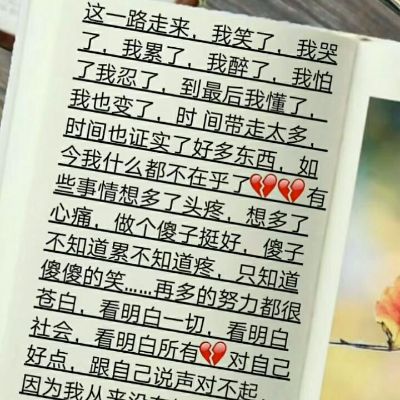 这一路走来，我笑了，我哭
了，我累了，我醉了，我怕
了我忍了，到最后我懂了，
我也变了，时 间带走太多，
时间也证实了好多东西，如
今我什么都不在乎了💔💔有
些事情想多了头疼，想多了
心痛，做个傻子挺好，傻子
不知道累不知道疼，只知道
傻傻的笑……再多的努力都很
苍白，看明白一切，看明白
社会，看明白所有💔对自己
好点，跟自己说声对不起，
因为我从来没有